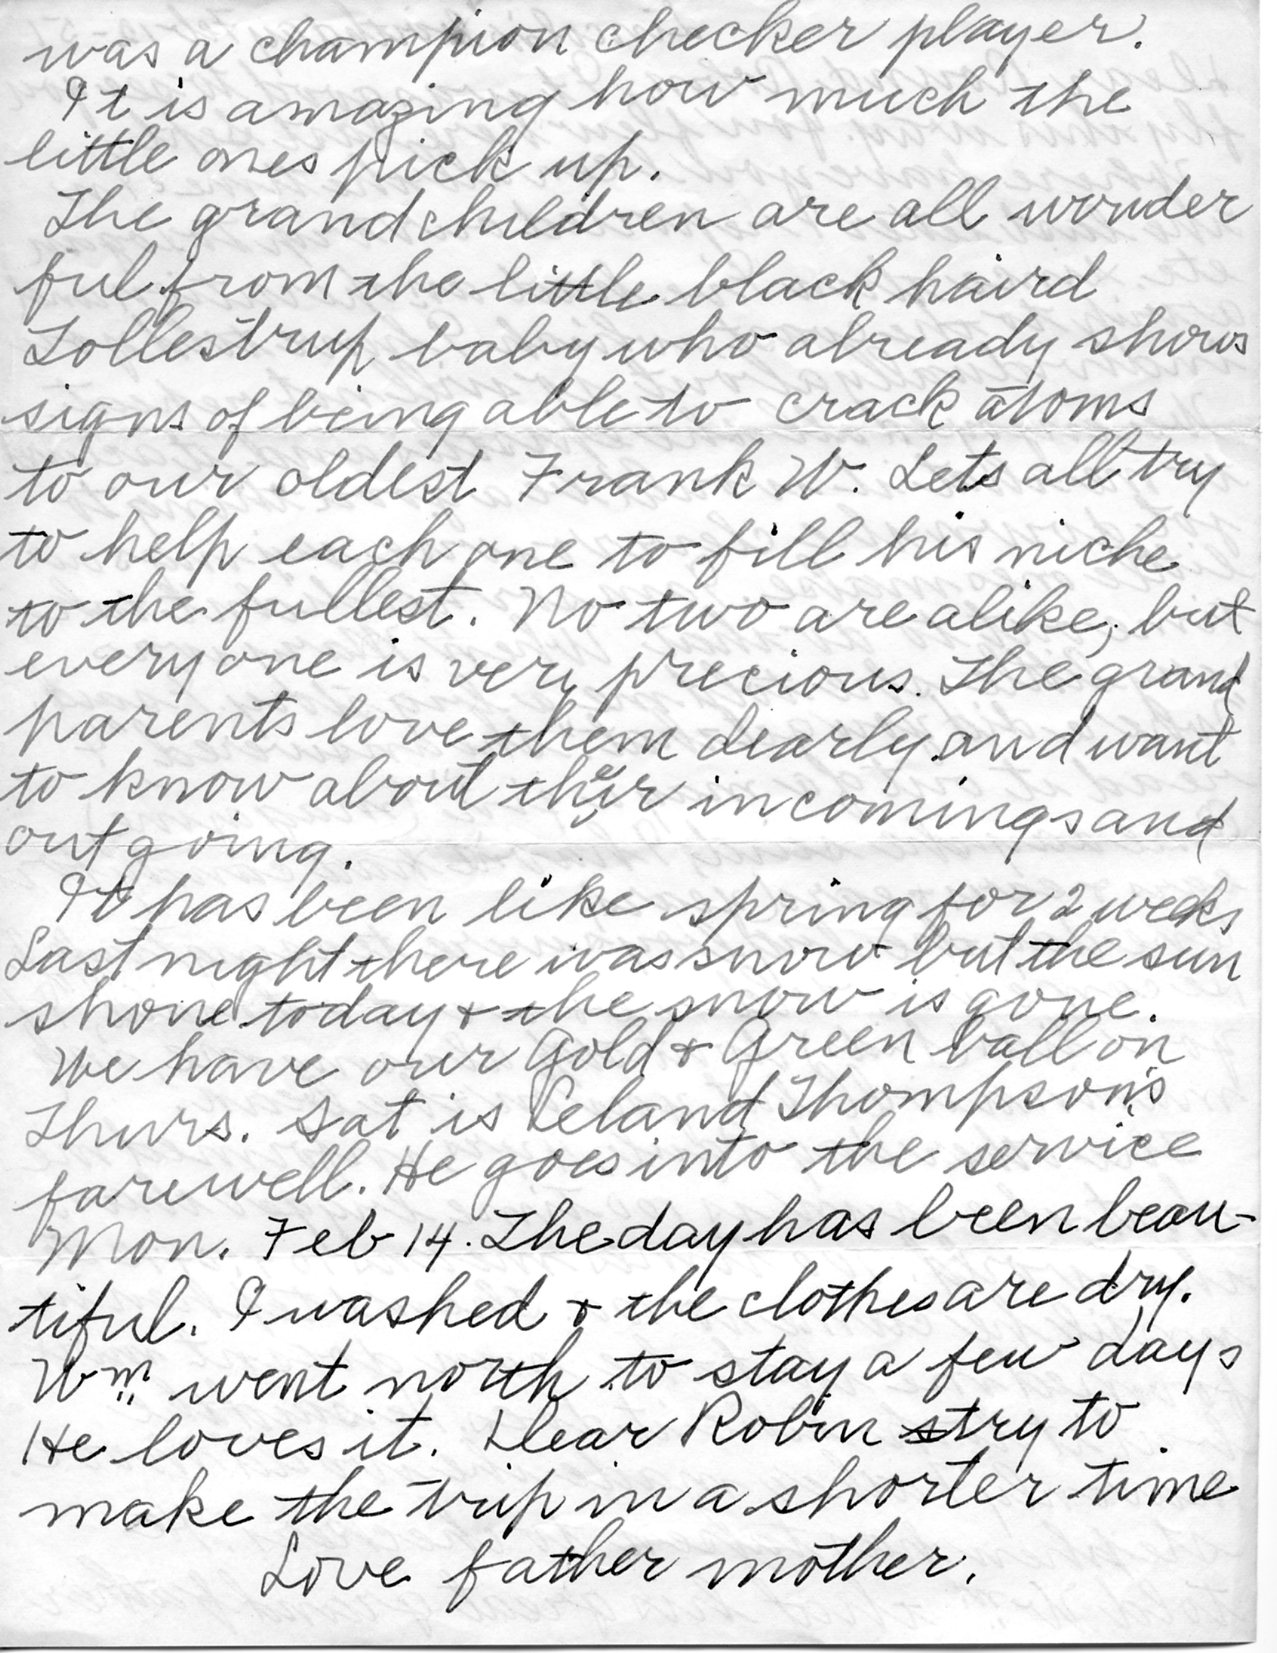 was a champion checker player.
It is amazing how much the
little ones pick up.
The grandchildren are all wonder
ful from the little black haird
Tollestrup baby who already shows
signs of being able to crack atoms
to our oldest Frank W. Lets all try
to help each one to fill his niche
to the fullest. No two are alike, but
everyone is very precious. The grand
parents love them dearly and want
to know about their incomings and
outgoing.
It has been like spring for 2 weeks
Last night there was snow but the sun
shone today & the snow is gone.
We have our Gold & Green ball on
Thurs. Sat is Leland Thompson's
farewell. He goes into the service
Mon. Feb 14. The day has been beau-
tiful. I washed & the clothes are dry.
Wm. went north to stay a few days
He loves it. Dear Robin try to
make the trip in a shorter time
Love father mother.